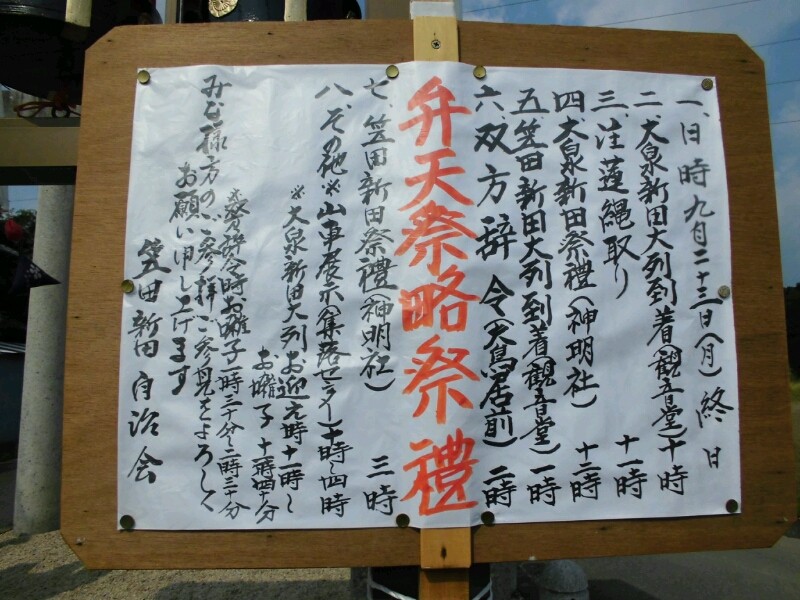 一、日時 九月二十三日(月) 終日
二、大泉新田大列到着(観音堂) 十時
三、注蓮縄取り 十一時
四、大泉新田祭禮(神明社) 十二時
五、笠田新田大列到着(観音堂) 一時
六、双方辞令(大鳥居前) 二時
弁天祭略祭禮
七、笠田新田祭禮(神明社) 三時
八、その他※山車展示(集落センター)十時~四時
※大泉新田大列お迎え時十一時~
お囃子 十一時四十分
※発辞令時お囃子一時三十分~二時三十分
みな様方のご参拝ご参見をよろしく
お願い申し上げます
笠田新田 自治会